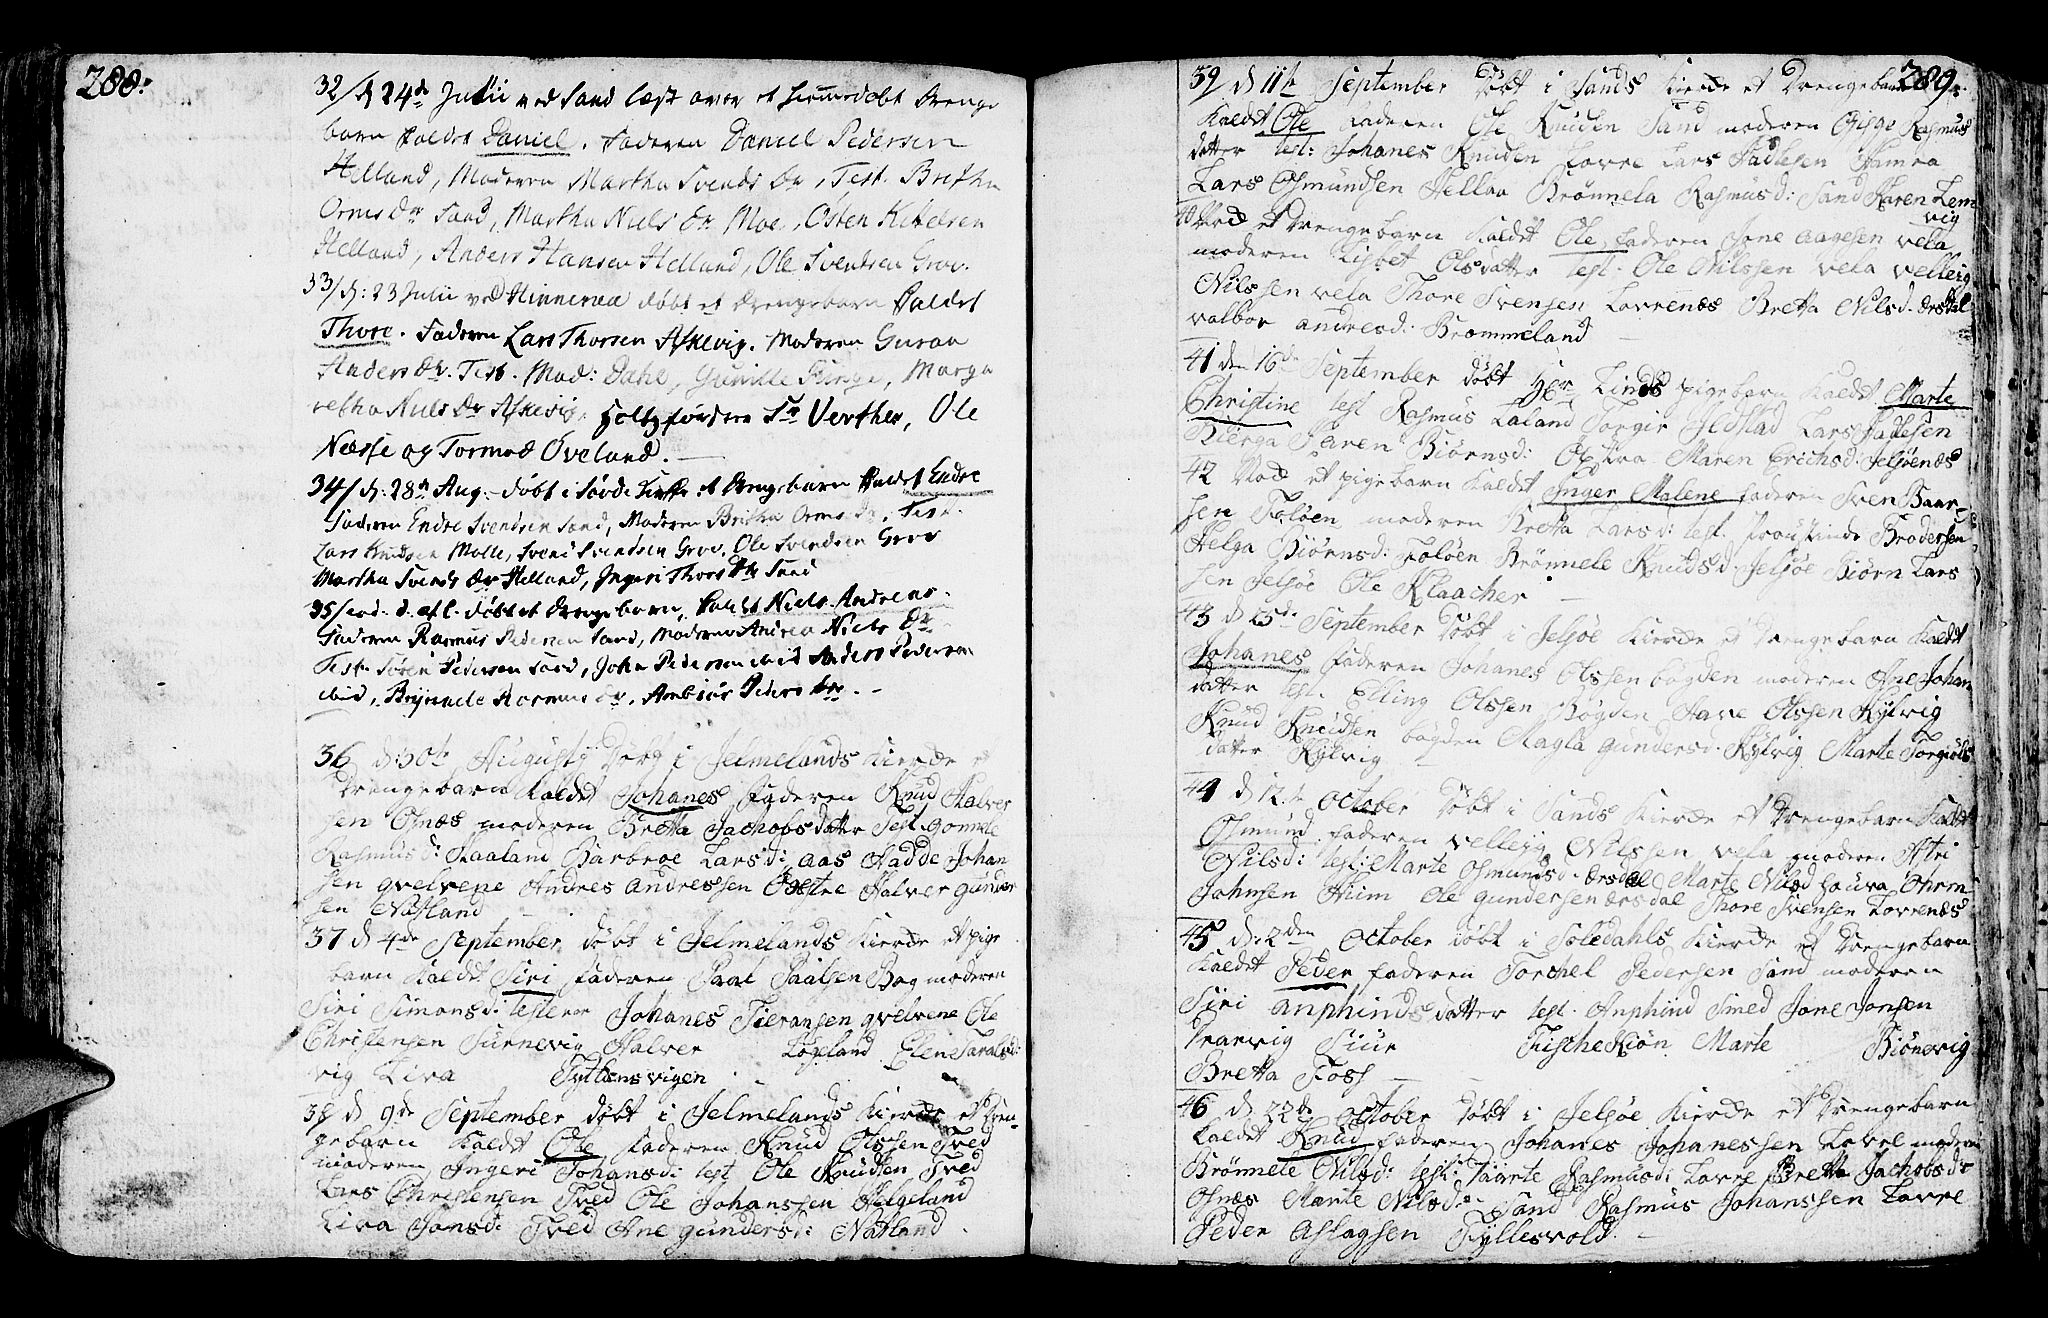 288.
32/ d 24de Julii ved Sand læst over et hiemedøbt Drenge
barn kaldet Daniel. Faderen Daniel Pedersen
Helland, Moderen Martha Svends Dr, Test. Bretha
Orms Dr Sand, Martha Niels Dr Moe, Osten Ketelsen
Helland, Anders Hansen Helland, Ole Svendsen Grov.
33/ d: 23 Julii ved Hinneraa døbt et Drengebarn kaldet
Thore. Faderen Lars Thorsen Askevig. Moderen Guroa
Anders Dr. Test. Mad: Dahl, Gunille, Marga
retha Niels Dr Askevig, Sr Verther, Ole
Næsse og Tormod Øveland.
34/ d: 28de Aug. døbt i Søvde Kirke et Drengebarn kaldet Endre
Faderen Endre Svendsen Sand, Moderen Britha Orms Dr, Test.
Lars Knudsen Molle, Svend Svendsen Grov, Ole Svendsen Grov
Martha Svends Dr Helland, Ingeri Thors Dr Sand
35/ eod. d. døbt et Drengebarn, kaldt Niels Andreas.
Faderen Rasmus Pedersen Sand, Moderen Andrea Niels Dr
Test. Søren Pedersen Sand, John Pedersen ibid Anders Pedersen
ibid, Brynnele Rasmus Dr, Ambiør Peders Dr.
36 d: 30te Augusty Døbt i Jelmelands Kierde et
Drengebarn kaldet Johanes faderen Knud Halver
sen Osnæs moderen Bretta Jachobs datter Test. Gonnele
Rasmusd: Haaland Barbroe Larsd: Aas Hadde Johan
sen qvelvene Andres Andressen Østre Halver Gunder
sen Natland
37 d 4de September døbt i Jelmelands Kierde et pige
barn kaldet Siri faderen Paal Paalsen Bog moderen
Siri Simonsd: testeror Johanes Tieransen qvelvene Ole
Christensen Surnevig Halver Løyland Elen Taralsd:
vig Liva Tyttensvigen
38 d 9de September døbt i Jelmelands Kierde et Dren-
gebarn kaldet Ole faderen Knud Olssen Tved
moderen Ingeri Johansd: test Ole Knudsen Tved
Lars Christensen Tved Ole Johanssen Helgeland
Liva Jonsd: Tved Ane Gundersd: Natland
289.
39 d 11te September Døbt i Sands Kierde et Drengebarn
Kaldet Ole faderen Ole Knudsen Sand moderen Giøge Rasmus
datter test: Johanes Knudsen Lovre Lars Hadlesen Hamra
Lars Osmundsen Hellaa Brønnela Rasmusd: Sand Karen Lem
vig
40 Nod et Drengebarn Kaldet Ole faderen Jone Aagesen vela
moderen Lisbet Olsdatter test: Ole Nilssen vela Velleig
Nilssen vela Thore Svensen Lovrenæs Bretta Nilsd. Ørsdal
valbor Andresd: Brommeland
41 den 16de September døbt Hr Linds pigebarn kaldet Marte
Christine test Rasmus Laland Torgir Ildstad Lars Hadlesen
Bierga Karen Biørnsd: Maren Erichsd: Jelsøenæs
42 Nod et pigebarn Kaldet Inger Malene faderen Sven Baar-
sen Foløen moderen Bretta Larsd: test. Proustinde Brodersen
Helga Biørnsd: Foløen Brønnele Knudsd Jelsøe Biørn Lars
sen Jelsøe Ole Klaacher
43 d 25de September Døbt i Jelsøe Kierde et Drengebarn Kaldet
Johanes faderen Johanes Olssen bogden moderen Ane Johans
datter test. Elling Olssen Bøgden Aave Olssen Kylvig
Knud Knudsen bøgden Magla Gundersd. Kylvig Marte Torgiuls
datter Kylvig
44 d 12te October Døbt i Sands Kierde et Drengebarn Kaldet
Osmund faderen velleig Nilssen vela moderen Atri
Nilsd: test: Marte Osmundsd: Ørsdal Marte Nilsd Houra Orm
Johnsen Hiim Ole Gundersen Ørsdal Thore Svensen Lovrenæs
45 d: 2den October døbt i Soledahls Kierde et Drengebarn
Kaldet Peder faderen Torchel Pedersen Sand moderen
Siri Anphinds datter test. Anphind Smed Jone Jonsen
Drarvig Siur Fische Kiøn Marte Biønevig
Bretta Foss
46 d 23de October Døbt i Jelsøe Kierde et Drengebarn
Kaldet Knud faderen Johanes Johanessen Lovre moderen
Brønnele Nilsd: test: Taarte Rasmusd: Lovre Bretta Jachobsd:
Osnæs Marte Nilsd: Sand Rasmus Johanssen Lovre
Peder Aslagsen Fyllesvold.